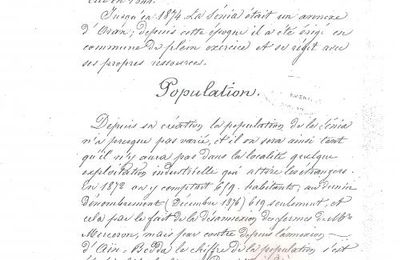 Jusqu'en 1874 La Sénia était un annexe
d'Oran; depuis cette époque il a été érigé en
commune de plein exercice et se régit avec
ses propres ressources.
Population.
Depuis sa création la population de la Sénia
n'a presque pas varié, et il en sera ainsi tant
qu'il n'y aura pas dans la localité quelque
exploitation industrielle qui attire les étrangers.
En 1872 on y comptait 679 habitants, au dernier
dénombrement (Décembre 1876) 619 seulement, et
cela par le fait de la désunion des fermes de Mr
Merceron, mais par contre depuis l'annexion
d'Aïn-Beïda le chiffre de la population s'est